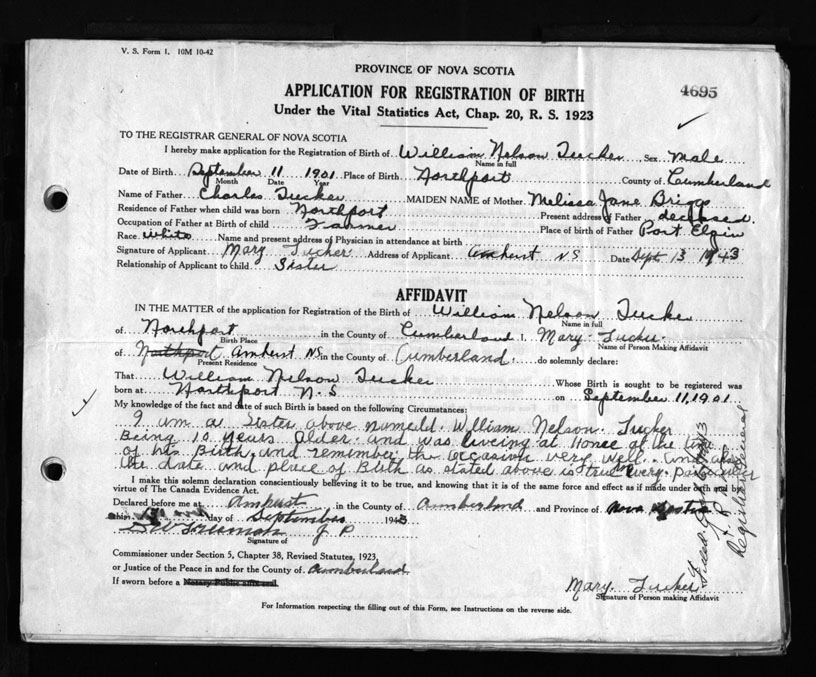 V. S. Form 1. 10M 10-42
PROVINCE OF NOVA SCOTIA
APPLICATION FOR REGISTRATION OF BIRTH
4695
Under the Vital Statistics Act, Chap. 20, R. S. 1923
TO THE REGISTRAR GENERAL OF NOVA SCOTIA
I hereby make application for the Registration of Birth of William Nelson Tucker Sex Male
Name in full
Date of Birth September 11 1901 Place of Birth Northport County of Cumberland
Month Date Year
Name of Father Charles Tucker MAIDEN NAME of Mother Melissa Jane Briggs
Residence of Father when child was born Northport Present address of Father deceased.
Occupation of Father at Birth of child Farmer Place of birth of Father Port Elgin
Race White Name and present address of Physician in attendance at birth
Signature of Applicant Mary Tucker Address of Applicant Amherst NS Date Sept 13 1943
Relationship of Applicant to child Sister
AFFIDAVIT
IN THE MATTER of the application for Registration of the Birth of William Nelson Tucker
Name in full
of Northport in the County of Cumberland I, Mary Tucker.
Birth Place Name of Person Making Affidavit
of Northport Amherst NS in the County of Cumberland. do solemnly declare:
Present Residence
That William Nelson Tucker Whose Birth is sought to be registered was
born at Northport N.S on September 11, 1901
My knowledge of the fact and date of such Birth is based on the following Circumstances:
I am a Sister above named. William Nelson Tucker
Being 10 years older. and was liveing at Home at the time
of his Birth, and remember the occasion very well. and also
the date and place of Birth as stated above is true
I make this solemn declaration conscientiously believing it to be true, and knowing that it is of the same force and effect as if made under oath and by
virtue of The Canada Evidence Act.
Declared before me at Amherst in the County of Cumberland and Province of Nova Scotia
this day of September 1943
J P
Signature of
Commissioner under Section 5, Chapter 38, Revised Statutes, 1923,
or Justice of the Peace in and for the County of Cumberland
If sworn before a Notary Public affix seal.
Mary Tucker
Signature of Person making Affidavit
For Information respecting the filling out of this Form, see Instructions on the reverse side.
Registrar General